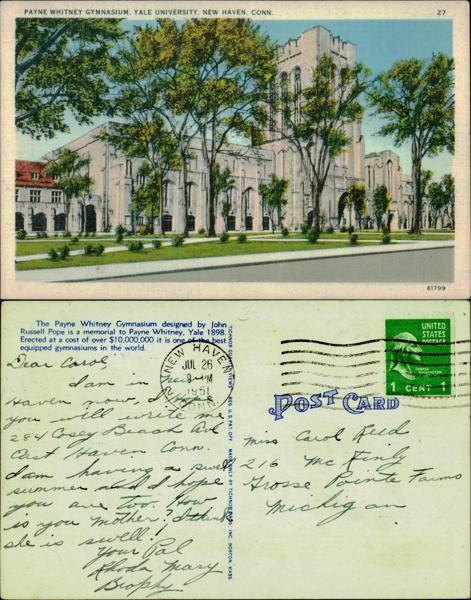 PAYNE WHITNEY GYMNASIUM, YALE UNIVERSITY, NEW HAVEN, CONN.
27
61799
The Payne Whitney Gymnasium designed by John
Russell Pope is a memorial to Payne Whitney, Yale 1898.
Erected at a cost of over $10,000,000 it is one of the best
equipped gymnasiums in the world.
Dear Carol,
I am in New
Haven now. I hope
you will write me
284 Cosey Beach Ave
East Haven Conn.
I am having a swell
summer and I hope
you are too. How
is you mother? I think
she is swell!
Your Pal
Rhoda Mary
Brophy
NEW HAVEN
JUL 26
PM
1951
CONN.
UNITED
STATES
POSTAGE
1 CENT 1
POST CARD
Miss Carol Reid
216 McKinly
Grosse Pointe Farms
Michigan